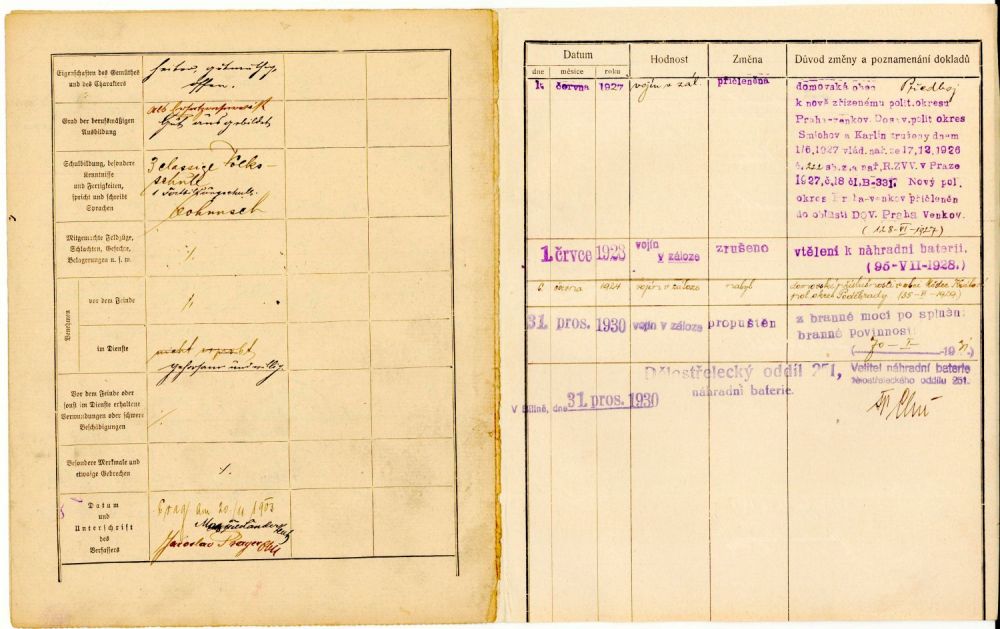 Eigenschaften des Gemüthes
und des Charakters
heiter, gutmüthig,
offen.
Grad der berufsmäßigen
Ausbildung
als
Gut ausgebildet
Schulbildung, besondere
Kenntnisse
und Fertigkeiten,
spricht und schreibt
Sprachen
3 classige Volks-
schule
1
böhmisch
Mitgemachte Feldzüge,
Schlachten, Gefechte,
Belagerungen u. s. w.
·/.
Benehmen
vor dem Feinde
im Dienste
nicht
gehorsam und willig
Vor dem Feinde oder
sonst im Dienste erhaltene
Verwundungen oder schwere
Beschädigungen
Besondere Merkmale und
etwaige Gebrechen
·/.
Datum
und
Unterschrift
des
Verfassers
Prag am 20/11 1903
Jaroslav
Datum
Hodnost
Změna
Důvod změny a poznamenání dokladů
dne
měsíce
roku
1. června 1927
vojín v zál.
přičleněna
domovská obec Předboj
k nově zřízenému polit. okresu
Praha-venkov. Dosav. polit okres
Smíchov a Karlín zrušeny dnem
1/6.1927 vlád. nař. ze 17.12.1926
č. 222 sb.z.a nař. R.ZVV. v Praze
1927, č.18 čl. B-331. Nový pol.
okres Praha-venkov přičleněn
do oblasti DOV. Praha Venkov.
(128-VI-1927)
1. červce 1928
vojín
v záloze
zrušeno
vtělení k náhradní baterii.
(95-VII-1928.)
února
vojín v záloze
nabyl
domovské příslušnosti v obci
pol. okres Poděbrady
31. pros. 1930
vojín v záloze
propuštěn
z branné moci po splnění
branné povinnosti
(70-I-19
Dělostřelecký oddíl 251,
náhradní baterie.
Velitel náhradní baterie
dělostřeleckého oddílu 251.
V Bílině, dne 31. pros. 1930